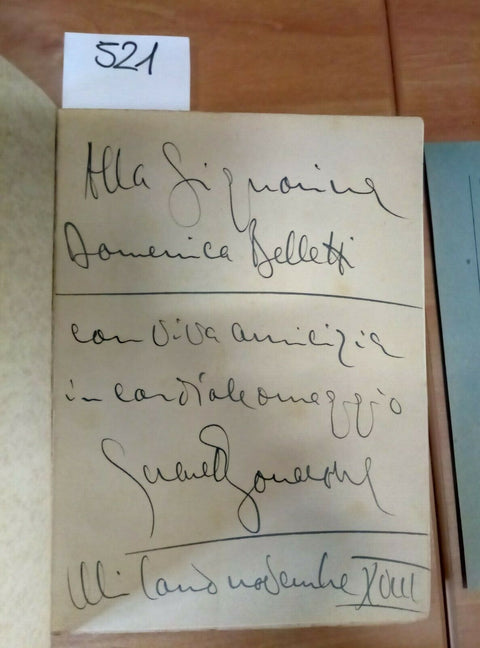 521
Alla Signorina
Domenica Belletti
con viva amicizia
in cordiale omaggio
Milano novembre XVIII